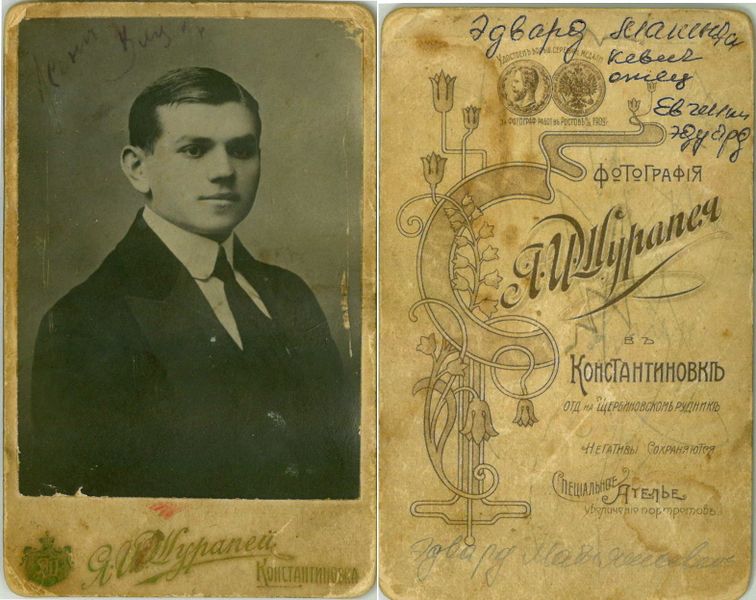 Я.И.Журапей
Константиновка
Эдвард
кевич
отец
Евгении
Эдуард
Удостоен больш. серебр. медали
за фотограф. работ. въ Ростовѣ н/Д 1909 г.
Фотографія
Я.И.Журапея
въ
Константиновкѣ
отд. на Щербиновскомъ рудникѣ
Негативы сохраняются
Специальное Ателье
увеличенія портретовъ
Эдвард